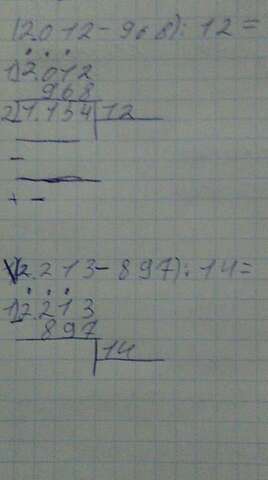 (2.012-968):12=
1)2.012
968
2)1.154 12
-
+ -
(2.213-897):14=
1)2.213
- 897
14